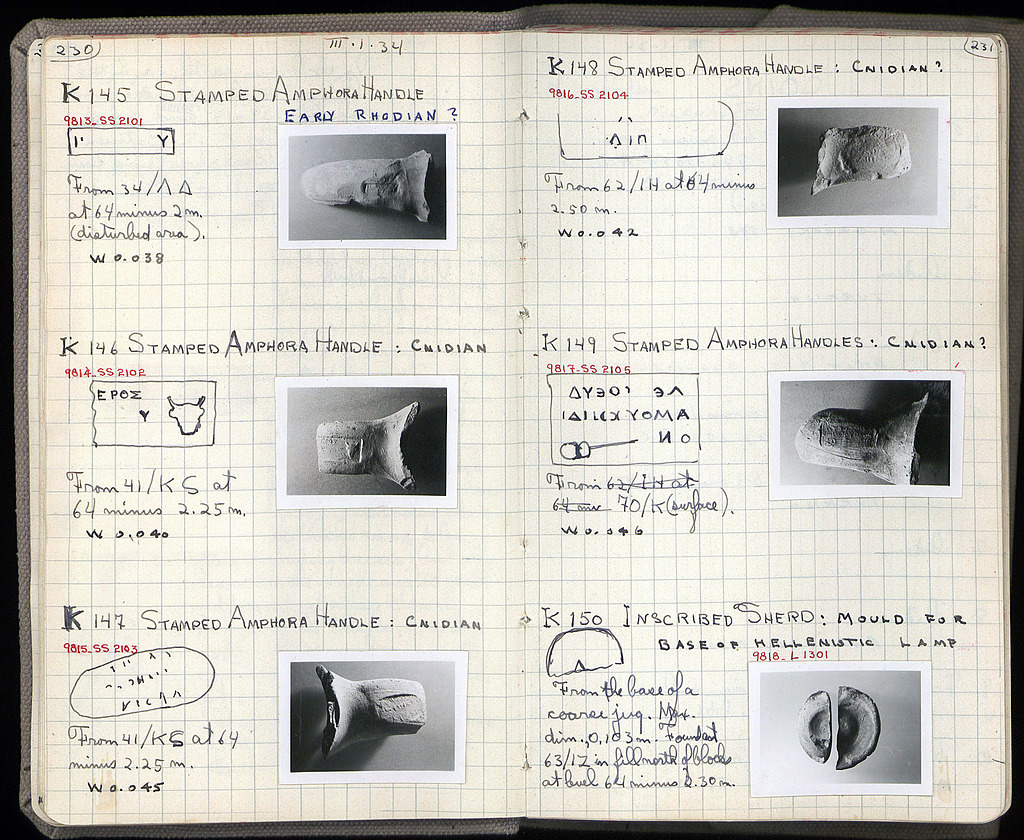 230
III·1·34
K 145 STAMPED AMPHORA HANDLE
9813_SS 2101
EARLY RHODIAN ?
Y
From 34/ΛΔ
at 64 minus 2 m.
(disturbed area).
W 0.038
K 146 STAMPED AMPHORA HANDLE : CNIDIAN
9814_SS 2102
ΕΡΟΣ
Υ
From 41/KS at
64 minus 2.25 m.
W 0.040
K 147 STAMPED AMPHORA HANDLE : CNIDIAN
9815_SS 2103
From 41/KS at 64
minus 2.25 m.
W 0.045
231
K 148 STAMPED AMPHORA HANDLE : CNIDIAN?
9816_SS 2104
From 62/IH at 64 minus
2.50 m.
W 0.042
K 149 STAMPED AMPHORA HANDLES : CNIDIAN?
9817_SS 2105
From 62/IH at
64 mi 70/K (surface).
W 0.046
K 150 INSCRIBED SHERD : MOULD FOR
BASE OF HELLENISTIC LAMP
9818_L 1301
Δ
From the base of a
coarse jug. Max.
dim., 0,103 m. Found at
63/IZ in fill north of blocks
at level 64 minus 2.30 m.